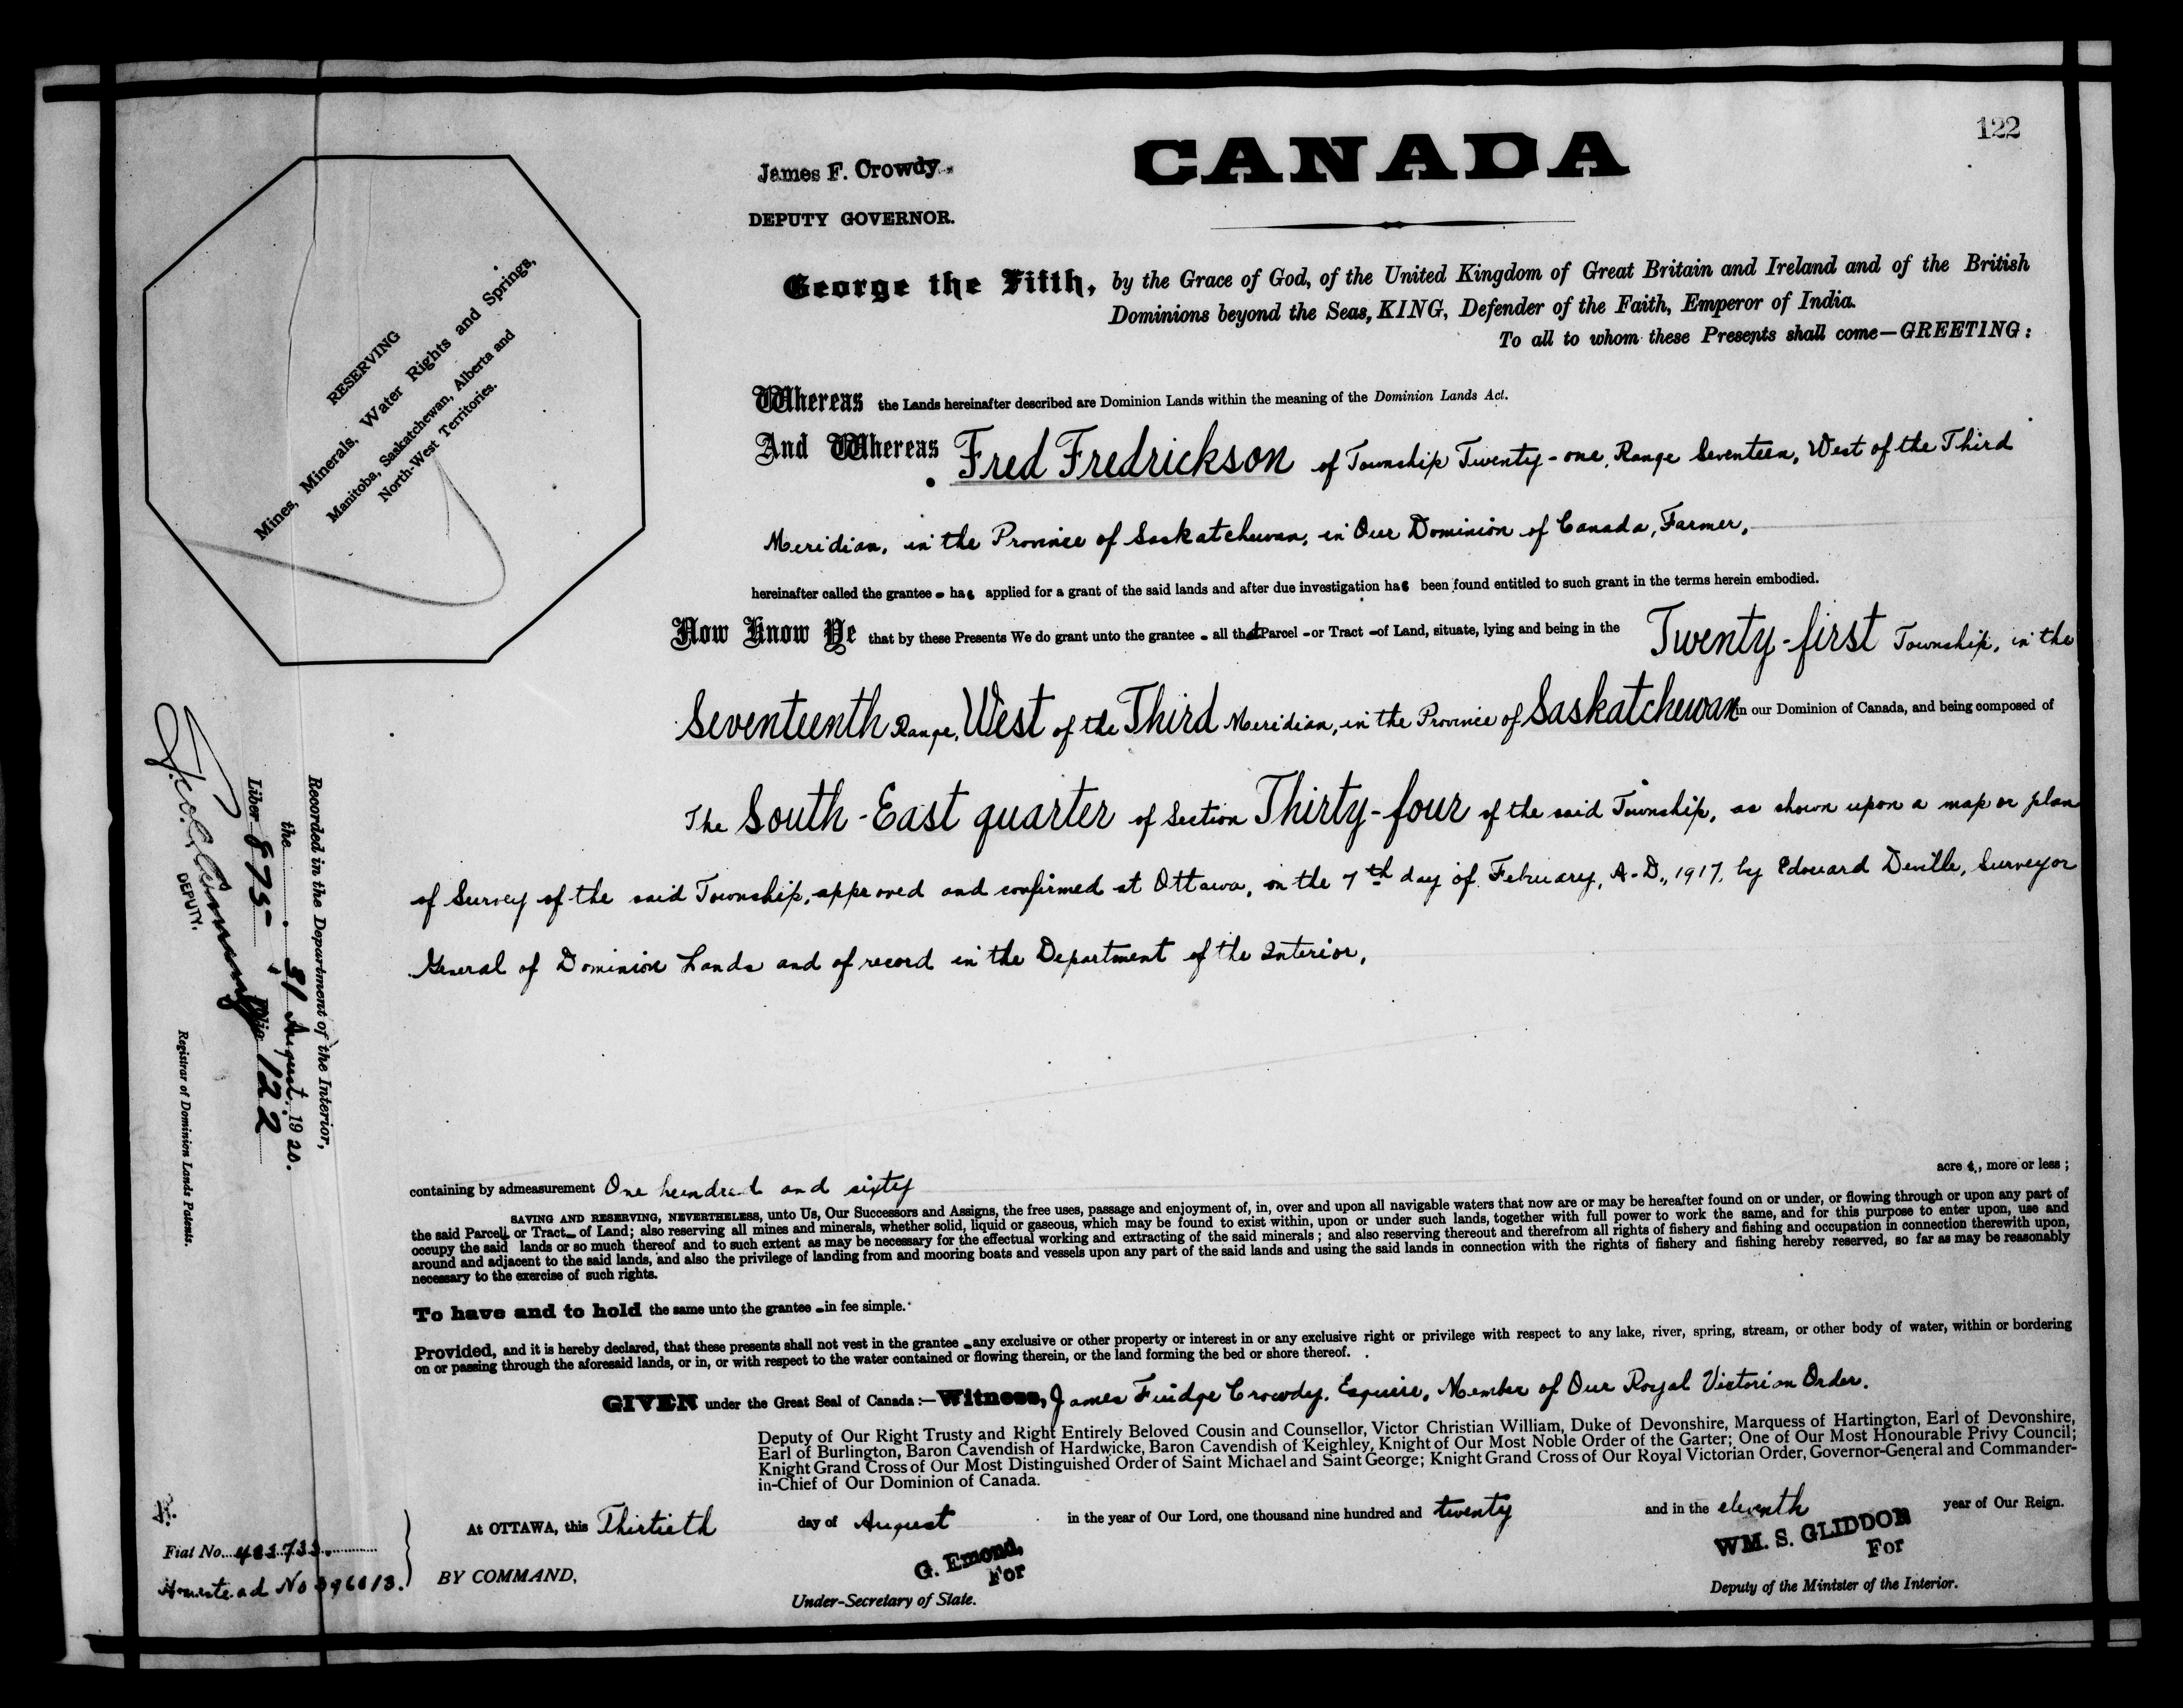 122
James F. Crowdy.
DEPUTY GOVERNOR.
CANADA
George the Fifth, by the Grace of God, of the United Kingdom of Great Britain and Ireland and of the British
Dominions beyond the Seas, KING, Defender of the Faith, Emperor of India.
To all to whom these Presents shall come—GREETING:
RESERVING
Mines, Minerals, Water Rights and Springs,
Manitoba, Saskatchewan, Alberta and
North-West Territories.
Whereas the Lands hereinafter described are Dominion Lands within the meaning of the Dominion Lands Act.
And Whereas Fred Fredrickson of Township Twenty-one, Range Seventeen, West of the Third
Meridian, in the Province of Saskatchewan, in Our Dominion of Canada, Farmer,
hereinafter called the grantee has applied for a grant of the said lands and after due investigation has been found entitled to such grant in the terms herein embodied.
Now Know Ye that by these Presents We do grant unto the grantee all that Parcel or Tract of Land, situate, lying and being in the Twenty-first Township, in the
Seventeenth Range, West of the Third Meridian, in the Province of Saskatchewan in our Dominion of Canada, and being composed of
The South-East quarter of Section Thirty-four of the said Township, as shown upon a map or plan
of Survey of the said Township, approved and confirmed at Ottawa, on the 7th day of February, A.D., 1917, by Edouard Deville, Surveyor
General of Dominion Lands and of record in the Department of the Interior,
Recorded in the Department of the Interior,
the 31 August 1920.
Liber 875 Folio 122
DEPUTY.
Registrar of Dominion Lands Patents.
containing by admeasurement One hundred and sixty acres, more or less;
SAVING AND RESERVING, NEVERTHELESS, unto Us, Our Successors and Assigns, the free uses, passage and enjoyment of, in, over and upon all navigable waters that now are or may be hereafter found on or under, or flowing through or upon any part of
the said Parcel or Tract of Land; also reserving all mines and minerals, whether solid, liquid or gaseous, which may be found to exist within, upon or under such lands, together with full power to work the same, and for this purpose to enter upon, use and
occupy the said lands or so much thereof and to such extent as may be necessary for the effectual working and extracting of the said minerals; and also reserving thereout and therefrom all rights of fishery and fishing and occupation in connection therewith upon,
around and adjacent to the said lands, and also the privilege of landing from and mooring boats and vessels upon any part of the said lands and using the said lands in connection with the rights of fishery and fishing hereby reserved, so far as may be reasonably
necessary to the exercise of such rights.
To have and to hold the same unto the grantee in fee simple.
Provided, and it is hereby declared, that these presents shall not vest in the grantee any exclusive or other property or interest in or any exclusive right or privilege with respect to any lake, river, spring, stream, or other body of water, within or bordering
on or passing through the aforesaid lands, or in, or with respect to the water contained or flowing therein, or the land forming the bed or shore thereof.
GIVEN under the Great Seal of Canada:—Witness, James Fuidge Crowdy, Esquire, Member of Our Royal Victorian Order.
Deputy of Our Right Trusty and Right Entirely Beloved Cousin and Counsellor, Victor Christian William, Duke of Devonshire, Marquess of Hartington, Earl of Devonshire,
Earl of Burlington, Baron Cavendish of Hardwicke, Baron Cavendish of Keighley, Knight of Our Most Noble Order of the Garter; One of Our Most Honourable Privy Council;
Knight Grand Cross of Our Most Distinguished Order of Saint Michael and Saint George; Knight Grand Cross of Our Royal Victorian Order, Governor-General and Commander-
in-Chief of Our Dominion of Canada.
At OTTAWA, this Thirtieth day of August in the year of Our Lord, one thousand nine hundred and twenty and in the eleventh year of Our Reign.
Fiat No.
Homestead No
BY COMMAND,
G. Emond,
For
Under-Secretary of State.
WM. S. GLIDDON
For
Deputy of the Minister of the Interior.